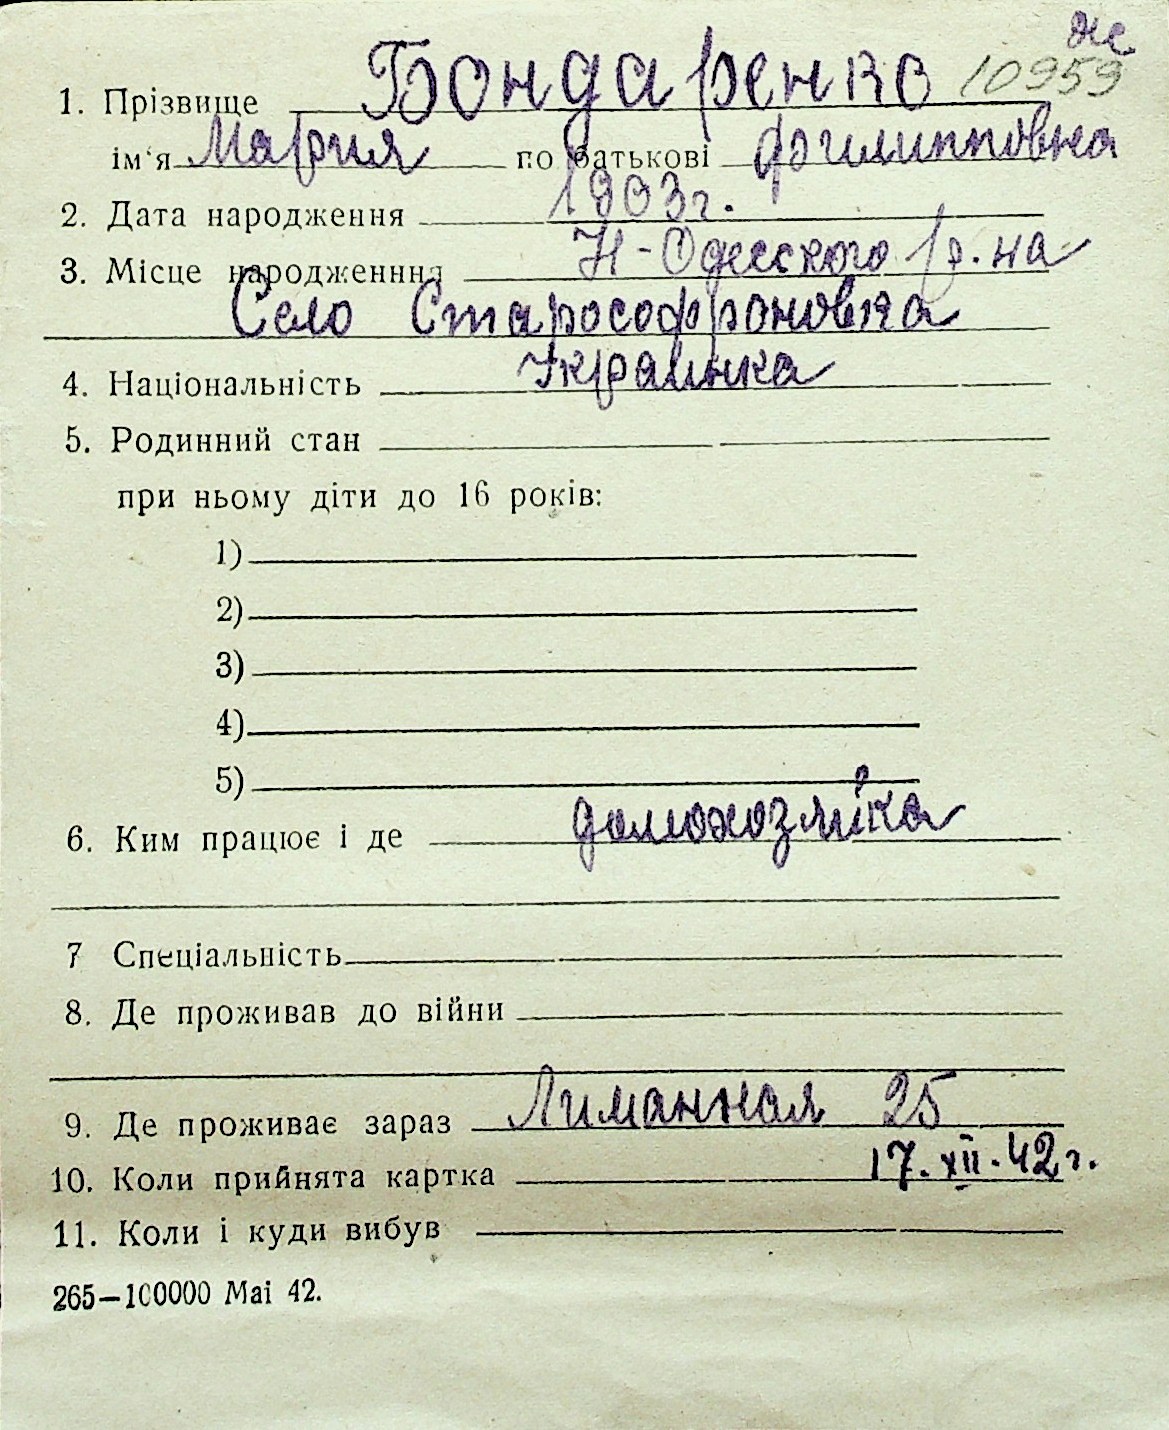 же
1. Прізвище Бондаренко 10959
ім‘я Мария по батькові Филипповна
2. Дата народження 1903г.
3. Місце народженння Н-Одесского р-на
Село Старософроновка
4. Національність Украинка
5. Родинний стан
при ньому діти до 16 років:
1)
2)
3)
4)
5)
6. Ким працює і де домохозяйка
7 Спеціальність
8. Де проживав до війни
9. Де проживає зараз Лиманная 25
10. Коли прийнята картка 17.XII.42г.
11. Коли і куди вибув
265—100000 Mai 42.